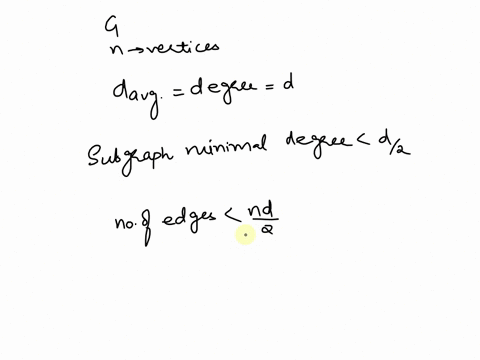 G
n → vertices
davg. = degree = d
Subgraph minimal degree < d/2
no. of edges < nd/2